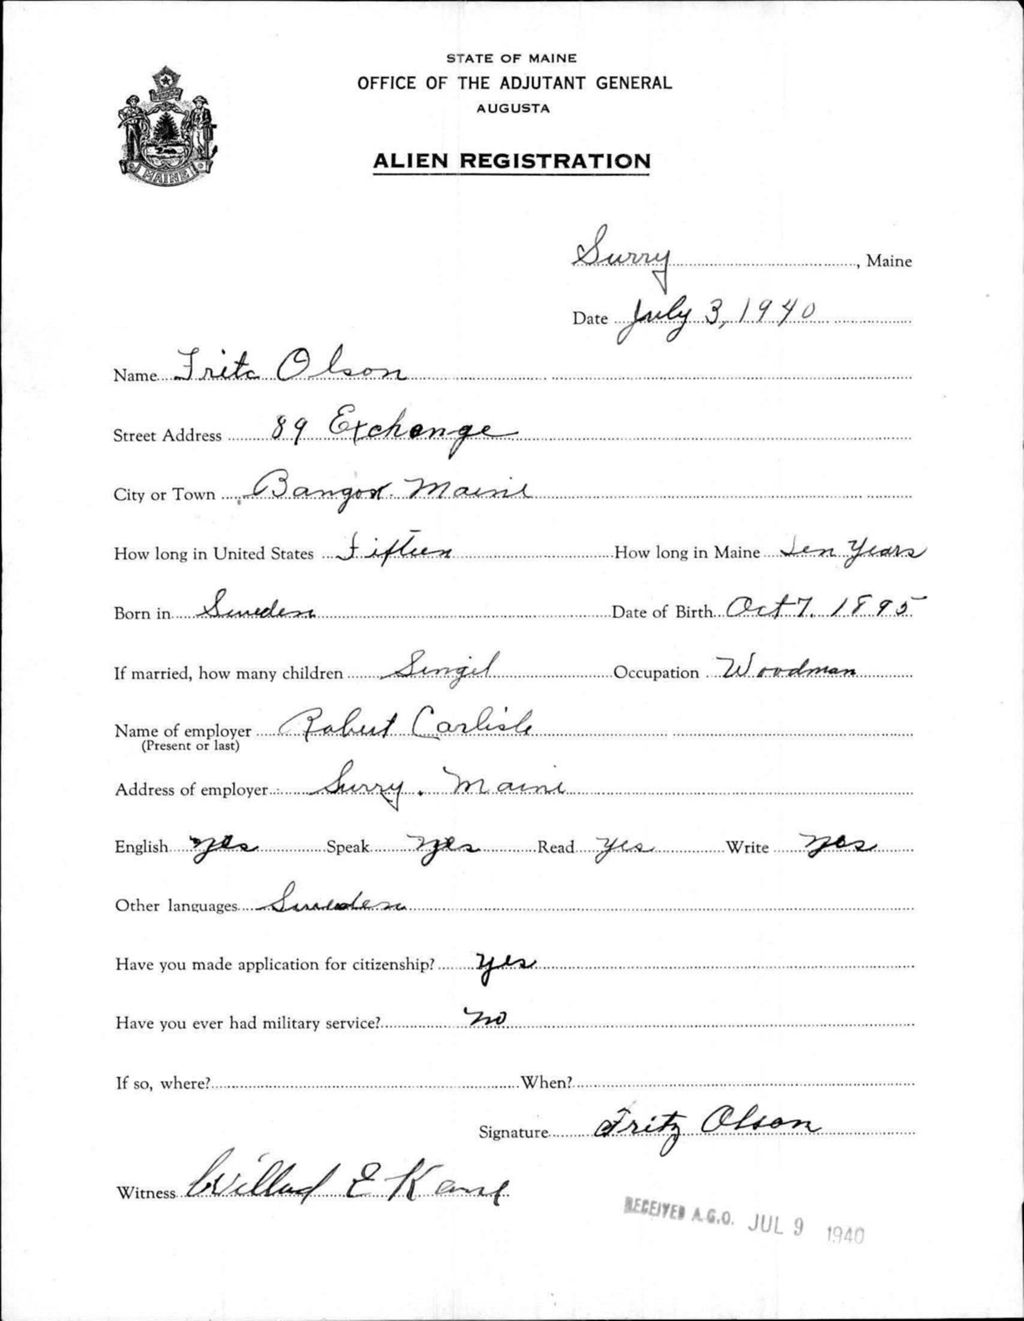 STATE OF MAINE
OFFICE OF THE ADJUTANT GENERAL
AUGUSTA
ALIEN REGISTRATION
MAINE
Surry, Maine
Date July 3, 1940
Name Fritz Olson
Street Address 89 Exchange
City or Town Bangor. Maine
How long in United States Fifteen How long in Maine Ten Years
Born in Sweden Date of Birth Oct 7, 1895
If married, how many children Singel Occupation Woodman
Name of employer Robert Carlisle
(Present or last)
Address of employer Surry. Maine
English yes Speak yes Read yes Write yes
Other languages Sweden
Have you made application for citizenship? yes
Have you ever had military service? no
If so, where? When?
Signature Fritz Olson
Witness Willard E Kane
RECEIVED A.G.O. JUL 9 1940